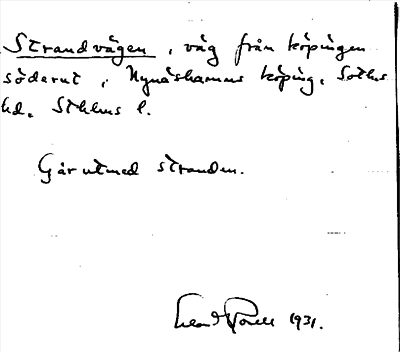 Strandvägen, väg från köpingen
söderut, Nynäshamns köping, Sotlms
hd. Sthlms l.
Går utmed stranden.
1931.